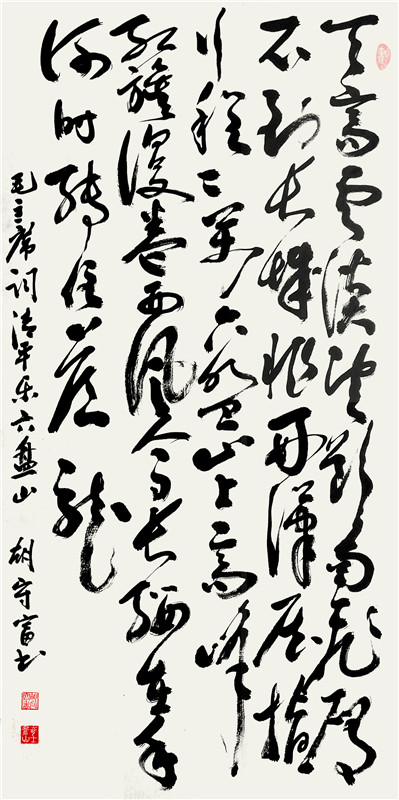 天高云淡望断南飛雁
不到长城非好漢屈指
行程二萬六盘山上高峰
红旗漫卷西风今日长缨在手
何时缚住苍龍
毛主席词清平乐六盘山 胡守富书